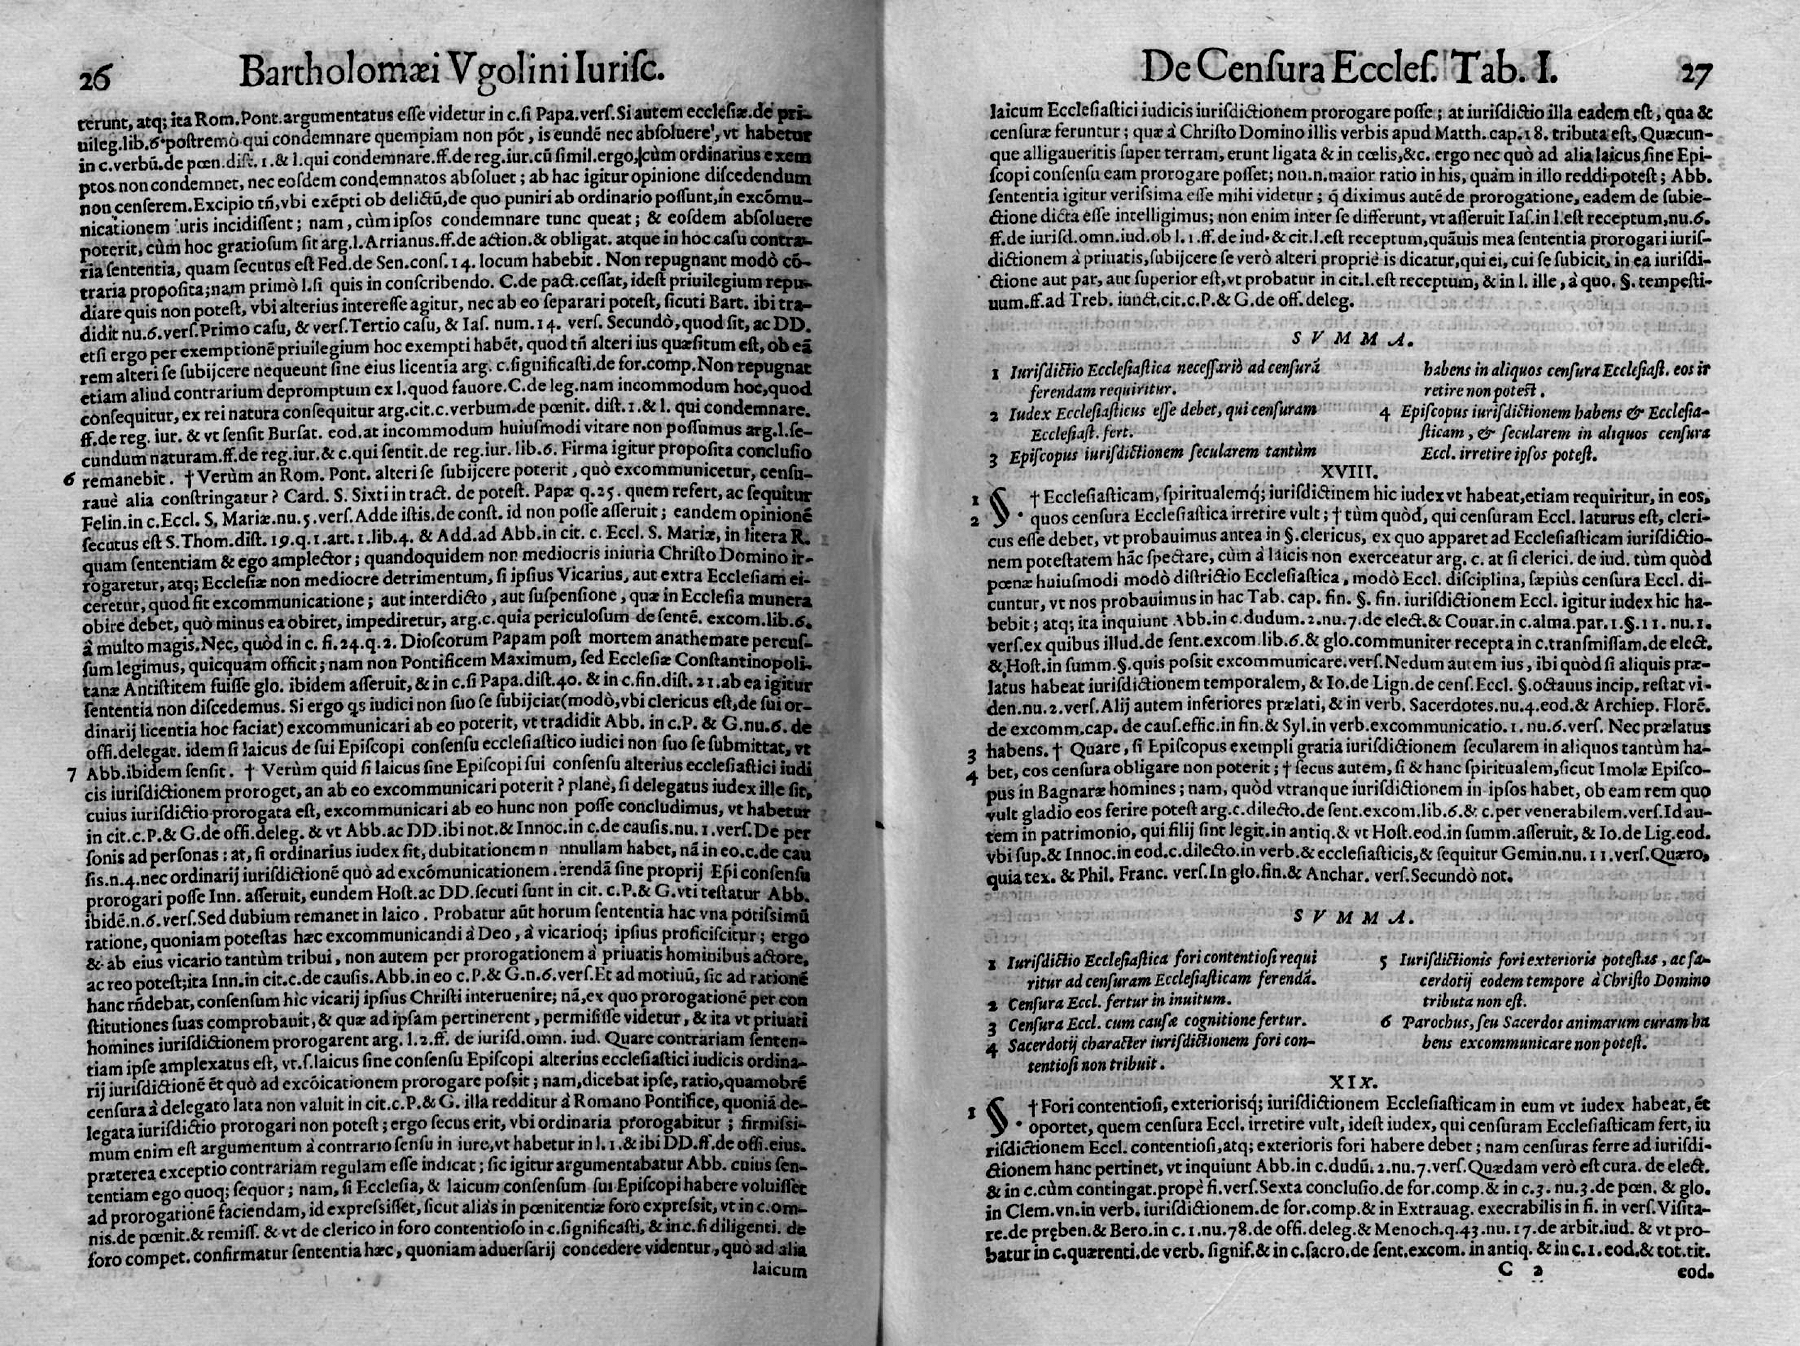 26 Bartholomæi Vgolini Iurisc.
terunt, atq; ita Rom. Pont. argumentatus esse videtur in c. si Papa. vers. Si autem ecclesiæ. de pri-
uileg. lib. 6. postremò qui condemnare quempiam non põt, is eundẽ nec absoluere, vt habetur
in c. verbũ. de pœn. dist. 1. & l. qui condemnare. ff. de reg. iur. cũ simil. ergo, cùm ordinarius exem
ptos non condemnet, nec eosdem condemnatos absoluet; ab hac igitur opinione discedendum
non censerem. Excipio tñ, vbi exẽpti ob delictũ, de quo puniri ab ordinario possunt, in excõmu-
nicationem iuris incidissent; nam, cùm ipsos condemnare tunc queat; & eosdem absoluere
poterit, cùm hoc gratiosum sit arg. l. Arrianus. ff. de action. & obligat. atque in hoc casu contra-
ria sententia, quam secutus est Fed. de Sen. cons. 14. locum habebit. Non repugnant modò cõ-
traria proposita; nam primò l. si quis in conscribendo. C. de pact. cessat, idest priuilegium repu-
diare quis non potest, vbi alterius interesse agitur, nec ab eo separari potest, sicuti Bart. ibi tra-
didit nu. 6. vers. Primo casu, & vers. Tertio casu, & Ias. num. 14. vers. Secundò, quod sit, ac DD.
etsi ergo per exemptionẽ priuilegium hoc exempti habẽt, quod tñ alteri ius quæsitum est, ob eã
rem alteri se subijcere nequeunt sine eius licentia arg. c. significasti. de for. comp. Non repugnat
etiam aliud contrarium depromptum ex l. quod fauore. C. de leg. nam incommodum hoc, quod
consequitur, ex rei natura consequitur arg. cit. c. verbum. de pœnit. dist. 1. & l. qui condemnare.
ff. de reg. iur. & vt sensit Bursat. eod. at incommodum huiusmodi vitare non possumus arg. l. se-
cundum naturam. ff. de reg. iur. & c. qui sentit. de reg. iur. lib. 6. Firma igitur proposita conclusio
6 remanebit. † Verùm an Rom. Pont. alteri se subijcere poterit, quò excommunicetur, censu-
rauè alia constringatur? Card. S. Sixti in tract. de potest. Papæ q. 25. quem refert, ac sequitur
Felin. in c. Eccl. S. Mariæ. nu. 5. vers. Adde istis. de const. id non posse asseruit; eandem opinionẽ
secutus est S. Thom. dist. 19. q. 1. art. 1. lib. 4. & Add. ad Abb. in cit. c. Eccl. S. Mariæ, in litera R.
quam sententiam & ego amplector; quandoquidem non mediocris iniuria Christo Domino ir-
rogaretur, atq; Ecclesiæ non mediocre detrimentum, si ipsius Vicarius, aut extra Ecclesiam ei-
ceretur, quod fit excommunicatione; aut interdicto, aut suspensione, quæ in Ecclesia munera
obire debet, quò minus ea obiret, impediretur, arg. c. quia periculosum de sentẽ. excom. lib. 6.
â multo magis. Nec, quòd in c. fi. 24. q. 2. Dioscorum Papam post mortem anathemate percus-
sum legimus, quicquam officit; nam non Pontificem Maximum, sed Ecclesiæ Constantinopoli-
tanæ Antistitem fuisse glo. ibidem asseruit, & in c. si Papa. dist. 40. & in c. fin. dist. 21. ab ea igitur
sententia non discedemus. Si ergo qs iudici non suo se subijciat (modò, vbi clericus est, de sui or-
dinarij licentia hoc faciat) excommunicari ab eo poterit, vt tradidit Abb. in c. P. & G. nu. 6. de
offi. delegat. idem si laicus de sui Episcopi consensu ecclesiastico iudici non suo se submittat, vt
7 Abb. ibidem sensit. † Verùm quid si laicus sine Episcopi sui consensu alterius ecclesiastici iudi
cis iurisdictionem proroget, an ab eo excommunicari poterit? planè, si delegatus iudex ille sit,
cuius iurisdictio prorogata est, excommunicari ab eo hunc non posse concludimus, vt habetur
in cit. c. P. & G. de offi. deleg. & vt Abb. ac DD. ibi not. & Innoc. in c. de causis. nu. 1. vers. De per
sonis ad personas: at, si ordinarius iudex sit, dubitationem n nnullam habet, nã in eo. c. de cau
sis. n. 4. nec ordinarij iurisdictionẽ quò ad excõmunicationem ferendã sine proprij Epi consensu
prorogari posse Inn. asseruit, eundem Host. ac DD. secuti sunt in cit. c. P. & G. vti testatur Abb.
ibidẽ. n. 6. vers. Sed dubium remanet in laico. Probatur aũt horum sententia hac vna potissimũ
ratione, quoniam potestas hæc excommunicandi à Deo, à vicarioq; ipsius proficiscitur; ergo
& ab eius vicario tantùm tribui, non autem per prorogationem à priuatis hominibus actore,
ac reo potest; ita Inn. in cit. c. de causis. Abb. in eo c. P. & G. n. 6. vers. Et ad motiuũ, sic ad rationẽ
hanc rñdebat, consensum hic vicarij ipsius Christi interuenire; nã, ex quo prorogationẽ per con
stitutiones suas comprobauit, & quæ ad ipsam pertinerent, permisisse videtur, & ita vt priuati
homines iurisdictionem prorogarent arg. l. 2. ff. de iurisd. omn. iud. Quare contrariam senten-
tiam ipse amplexatus est, vt. s. laicus sine consensu Episcopi alterius ecclesiastici iudicis ordina-
rij iurisdictionẽ ẽt quò ad excõicationem prorogare possit; nam, dicebat ipse, ratio, quamobrẽ
censura à delegato lata non valuit in cit. c. P. & G. illa redditur à Romano Pontifice, quoniã de-
legata iurisdictio prorogari non potest; ergo secus erit, vbi ordinaria prorogabitur; firmissi-
mum enim est argumentum à contrario sensu in iure, vt habetur in l. 1. & ibi DD. ff. de offi. eius.
præterea exceptio contrariam regulam esse indicat; sic igitur argumentabatur Abb. cuius sen-
tentiam ego quoq; sequor; nam, si Ecclesia, & laicum consensum sui Episcopi habere voluisset
ad prorogationẽ faciendam, id expressisset, sicut aliàs in pœnitentiæ foro expressit, vt in c. om-
nis. de pœnit. & remiss. & vt de clerico in foro contentioso in c. significasti, & in c. si diligenti. de
foro compet. confirmatur sententia hæc, quoniam aduersarij concedere videntur, quò ad alia
laicum
De Censura Eccles. Tab. I. 27
laicum Ecclesiastici iudicis iurisdictionem prorogare posse; at iurisdictio illa eadem est, qua &
censuræ feruntur; quæ à Christo Domino illis verbis apud Matth. cap. 18. tributa est, Quæcun-
que alligaueritis super terram, erunt ligata & in cœlis, &c. ergo nec quò ad alia laicus sine Epi-
scopi consensu eam prorogare posset; non. n. maior ratio in his, quàm in illo reddi potest; Abb.
sententia igitur verissima esse mihi videtur; q̃ diximus autẽ de prorogatione, eadem de subie-
ctione dicta esse intelligimus; non enim inter se differunt, vt asseruit Ias. in l. est receptum, nu. 6.
ff. de iurisd. omn. iud. ob l. 1. ff. de iud. & cit. l. est receptum, quãuis mea sententia prorogari iuris-
dictionem à priuatis, subijcere se verò alteri propriè is dicatur, qui ei, cui se subicit, in ea iurisdi-
ctione aut par, aut superior est, vt probatur in cit. l. est receptum, & in l. ille, à quo. §. tempesti-
uum. ff. ad Treb. iunct. cit. c. P. & G. de off. deleg.
SVMMA.
1 Iurisdictio Ecclesiastica necessariò ad censurã
ferendam requiritur.
2 Iudex Ecclesiasticus esse debet, qui censuram
Ecclesiast. fert.
3 Episcopus iurisdictionem secularem tantùm
habens in aliquos censura Ecclesiast. eos ir
retire non potest.
4 Episcopus iurisdictionem habens & Ecclesia-
sticam, & secularem in aliquos censura
Eccl. irretire ipsos potest.
XVIII.
1 §. † Ecclesiasticam, spiritualemq́; iurisdictinem hic iudex vt habeat, etiam requiritur, in eos,
2 quos censura Ecclesiastica irretire vult; † tùm quòd, qui censuram Eccl. laturus est, cleri-
cus esse debet, vt probauimus antea in §. clericus, ex quo apparet ad Ecclesiasticam iurisdictio-
nem potestatem hãc spectare, cùm à laicis non exerceatur arg. c. at si clerici. de iud. tùm quòd
pœnæ huiusmodi modò districtio Ecclesiastica, modò Eccl. disciplina, sæpiùs censura Eccl. di-
cuntur, vt nos probauimus in hac Tab. cap. fin. §. fin. iurisdictionem Eccl. igitur iudex hic ha-
bebit; atq; ita inquiunt Abb. in c. dudum. 2. nu. 7. de elect. & Couar. in c. alma. par. 1. §. 11. nu. 1.
vers. ex quibus illud. de sent. excom. lib. 6. & glo. communiter recepta in c. transmissam. de elect.
& Host. in summ. §. quis possit excommunicare. vers. Nedum autem ius, ibi quòd si aliquis præ-
latus habeat iurisdictionem temporalem, & Io. de Lign. de cens. Eccl. §. octauus incip. restat vi-
den. nu. 2. vers. Alij autem inferiores prælati, & in verb. Sacerdotes. nu. 4. eod. & Archiep. Florẽ.
de excomm. cap. de caus. effic. in fin. & Syl. in verb. excommunicatio. 1. nu. 6. vers. Nec prælatus
3 habens. † Quare, si Episcopus exempli gratia iurisdictionem secularem in aliquos tantùm ha-
4 bet, eos censura obligare non poterit; † secus autem, si & hanc spiritualem, sicut Imolæ Episco-
pus in Bagnaræ homines; nam, quòd vtranque iurisdictionem in ipsos habet, ob eam rem quo
vult gladio eos ferire potest arg. c. dilecto. de sent. excom. lib. 6. & c. per venerabilem. vers. Id au-
tem in patrimonio, qui filij sint legit. in antiq. & vt Host. eod. in summ. asseruit, & Io. de Lig. eod.
vbi sup. & Innoc. in eod. c. dilecto. in verb. & ecclesiasticis, & sequitur Gemin. nu. 11. vers. Quæro,
quia tex. & Phil. Franc. vers. In glo. fin. & Anchar. vers. Secundò not.
SVMMA.
1 Iurisdictio Ecclesiastica fori contentiosi requi
ritur ad censuram Ecclesiasticam ferendã.
2 Censura Eccl. fertur in inuitum.
3 Censura Eccl. cum causæ cognitione fertur.
4 Sacerdotij character iurisdictionem fori con-
tentiosi non tribuit.
5 Iurisdictionis fori exterioris potestas, ac sa-
cerdotij eodem tempore à Christo Domino
tributa non est.
6 Parochus, seu Sacerdos animarum curam ha
bens excommunicare non potest.
XIX.
1 §. † Fori contentiosi, exteriorisq́; iurisdictionem Ecclesiasticam in eum vt iudex habeat, ẽt
oportet, quem censura Eccl. irretire vult, idest iudex, qui censuram Ecclesiasticam fert, iu
risdictionem Eccl. contentiosi, atq; exterioris fori habere debet; nam censuras ferre ad iurisdi-
ctionem hanc pertinet, vt inquiunt Abb. in c. dudũ. 2. nu. 7. vers. Quædam verò est cura. de elect.
& in c. cùm contingat. propè fi. vers. Sexta conclusio. de for. comp. & in c. 3. nu. 3. de pœn. & glo.
in Clem. vn. in verb. iurisdictionem. de for. comp. & in Extrauag. execrabilis in fi. in vers. Visita-
re. de pręben. & Bero. in c. 1. nu. 78. de offi. deleg. & Menoch. q. 43. nu. 17. de arbit. iud. & vt pro-
batur in c. quærenti. de verb. signif. & in c. sacro. de sent. excom. in antiq. & in c. 1. eod. & tot. tit.
C 2 eod.